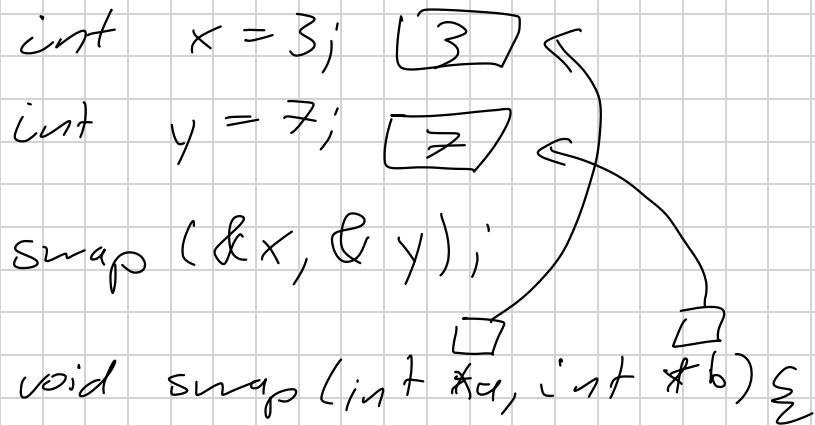 int x = 3; 3
int y = 7; 7
swap (&x, &y);
void swap (int *a, int *b) {